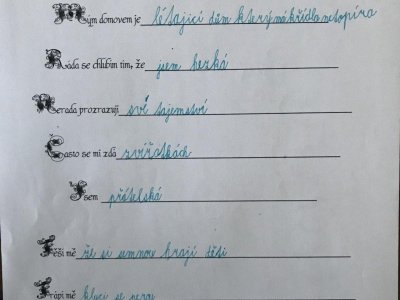 Mým domovem je létající dům který má křídla netopíra
Ráda se chlubím tím, že jsem hezká
Nerada prozrazuji své tajemství
Často se mi zdá zvířatkách
Jsem přátelská
Těší mě že si semnou hrají děti
Trápí mě kluci se perou